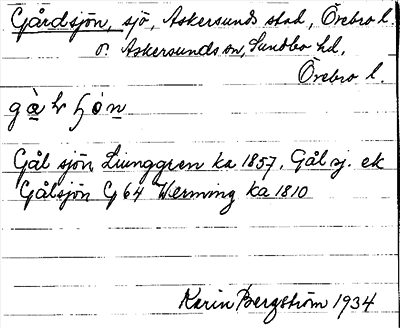 Gårdsjön, sjö, Askersunds stad, Örebro l.
o. Askersunds sn, Sundbo hd,
Örebro l.
Gål sjön Ljunggren ka 1857. Gål sj. ek
Gålsjön Cg 64 Werming ka 1810
Karin Bergström 1934